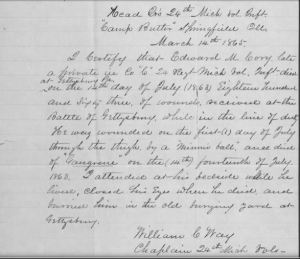 Head Qrs 24th Mich Vol Inft.
Camp Butler Springfield Ills.
March 14th 1865.
I Certify that Edward M. Cory late
a private in Co "C" 24 Regt Mich Vol. Inft. died
at Gettysburg Pa.
on the 14th day of July (1863) Eighteen hundred
and Sixty three, of wounds, received at the
Battle of Gettysburg, while in the line of duty
He was wounded on the first (1) day of July
through the thigh, by a "Minnie" ball, and died
of "Gangrene" on the (14th) fourteenth of July,
1863. I attended at his bedside while he
lived, closed his eyes when he died, and
buried him in the old burying yard at
Gettysburg.
William C Way
Chaplain 24th Mich Vols.